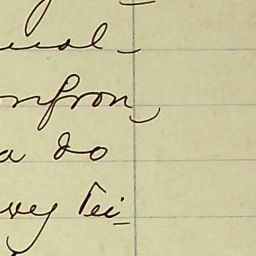 ual-
nfron
a do
vey Tei-